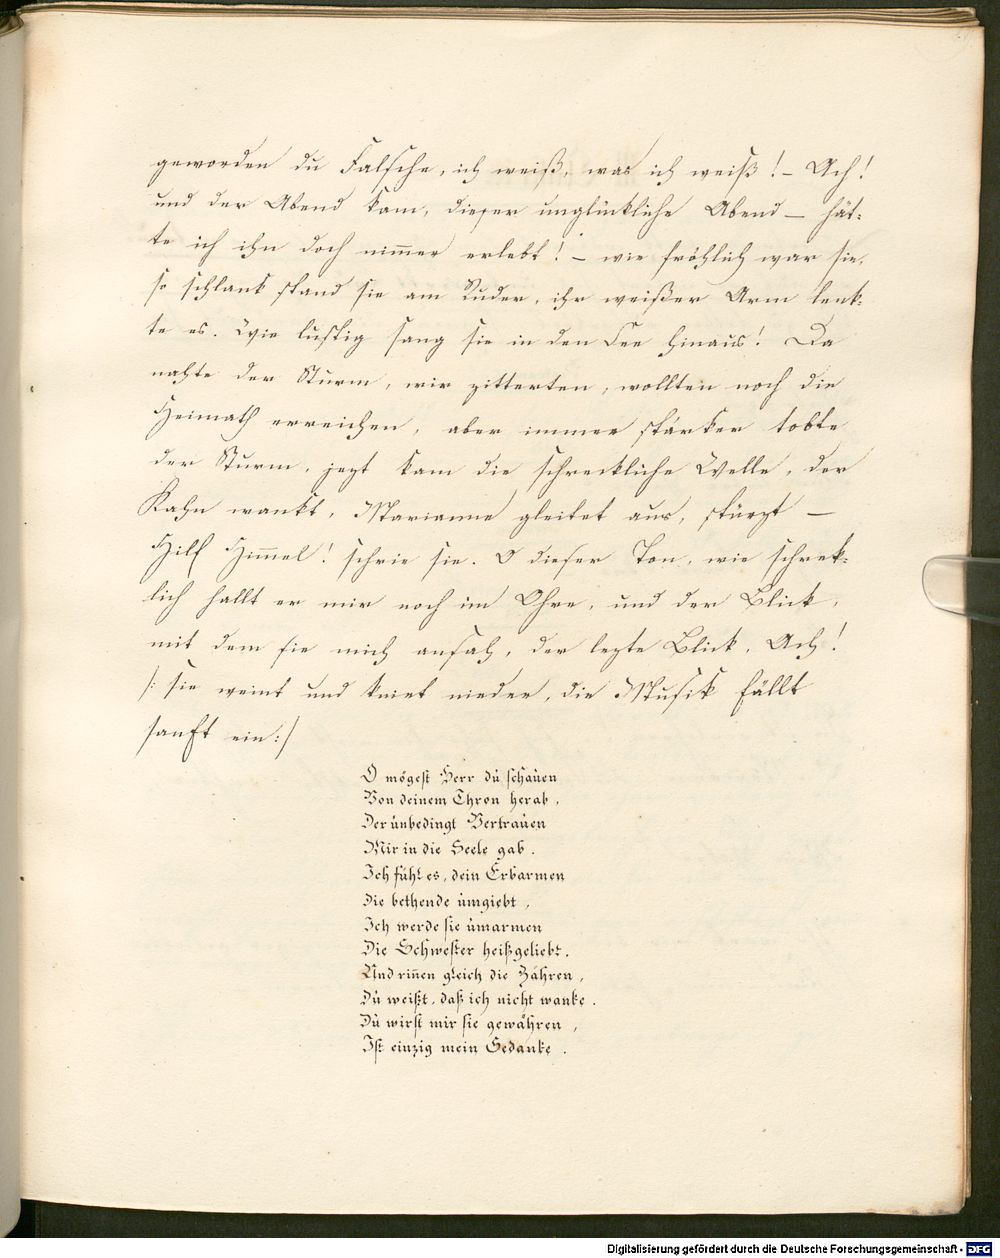 geworden du Falsche, ich weiß, was ich weiß! – Ach!
und der Abend kam, dieser unglückliche Abend – hät-
te ich ihn doch nim̄er erlebt! – wie fröhlich war sie,
so schlank stand sie am Ruder, ihr weißer Arm lenk-
te es. Wie lustig sang sie in den See hinaus! Da
nahte der Sturm, wir zitterten, wollten noch die
Heimath erreichen, aber immer stärker tobte
der Sturm, jezt kam die schreckliche Welle, der
Kahn wankt, Marianne gleitet aus, stürzt –
Hilf Him̄el! schrie sie. O dieser Ton, wie schrek-
lich hallt er mir noch im Ohre, und der Blick,
mit dem sie mich ansah, der lezte Blick. Ach!
/: sie weint und kniet nieder, die Musik fällt
sanft ein :/
O mögest Herr du schauen
Von deinem Thron herab,
Der unbedingt Vertrauen
Mir in die Seele gab.
Ich fühl es, dein Erbarmen
Die bethende umgiebt,
Ich werde sie umarmen
Die Schwester heißgeliebt.
Und rin̄en gleich die Zähren,
Du weißt, daß ich nicht wanke.
Du wirst mir sie gewähren,
Ist einzig mein Gedanke.
Digitalisierung gefördert durch die Deutsche Forschungsgemeinschaft - DFG